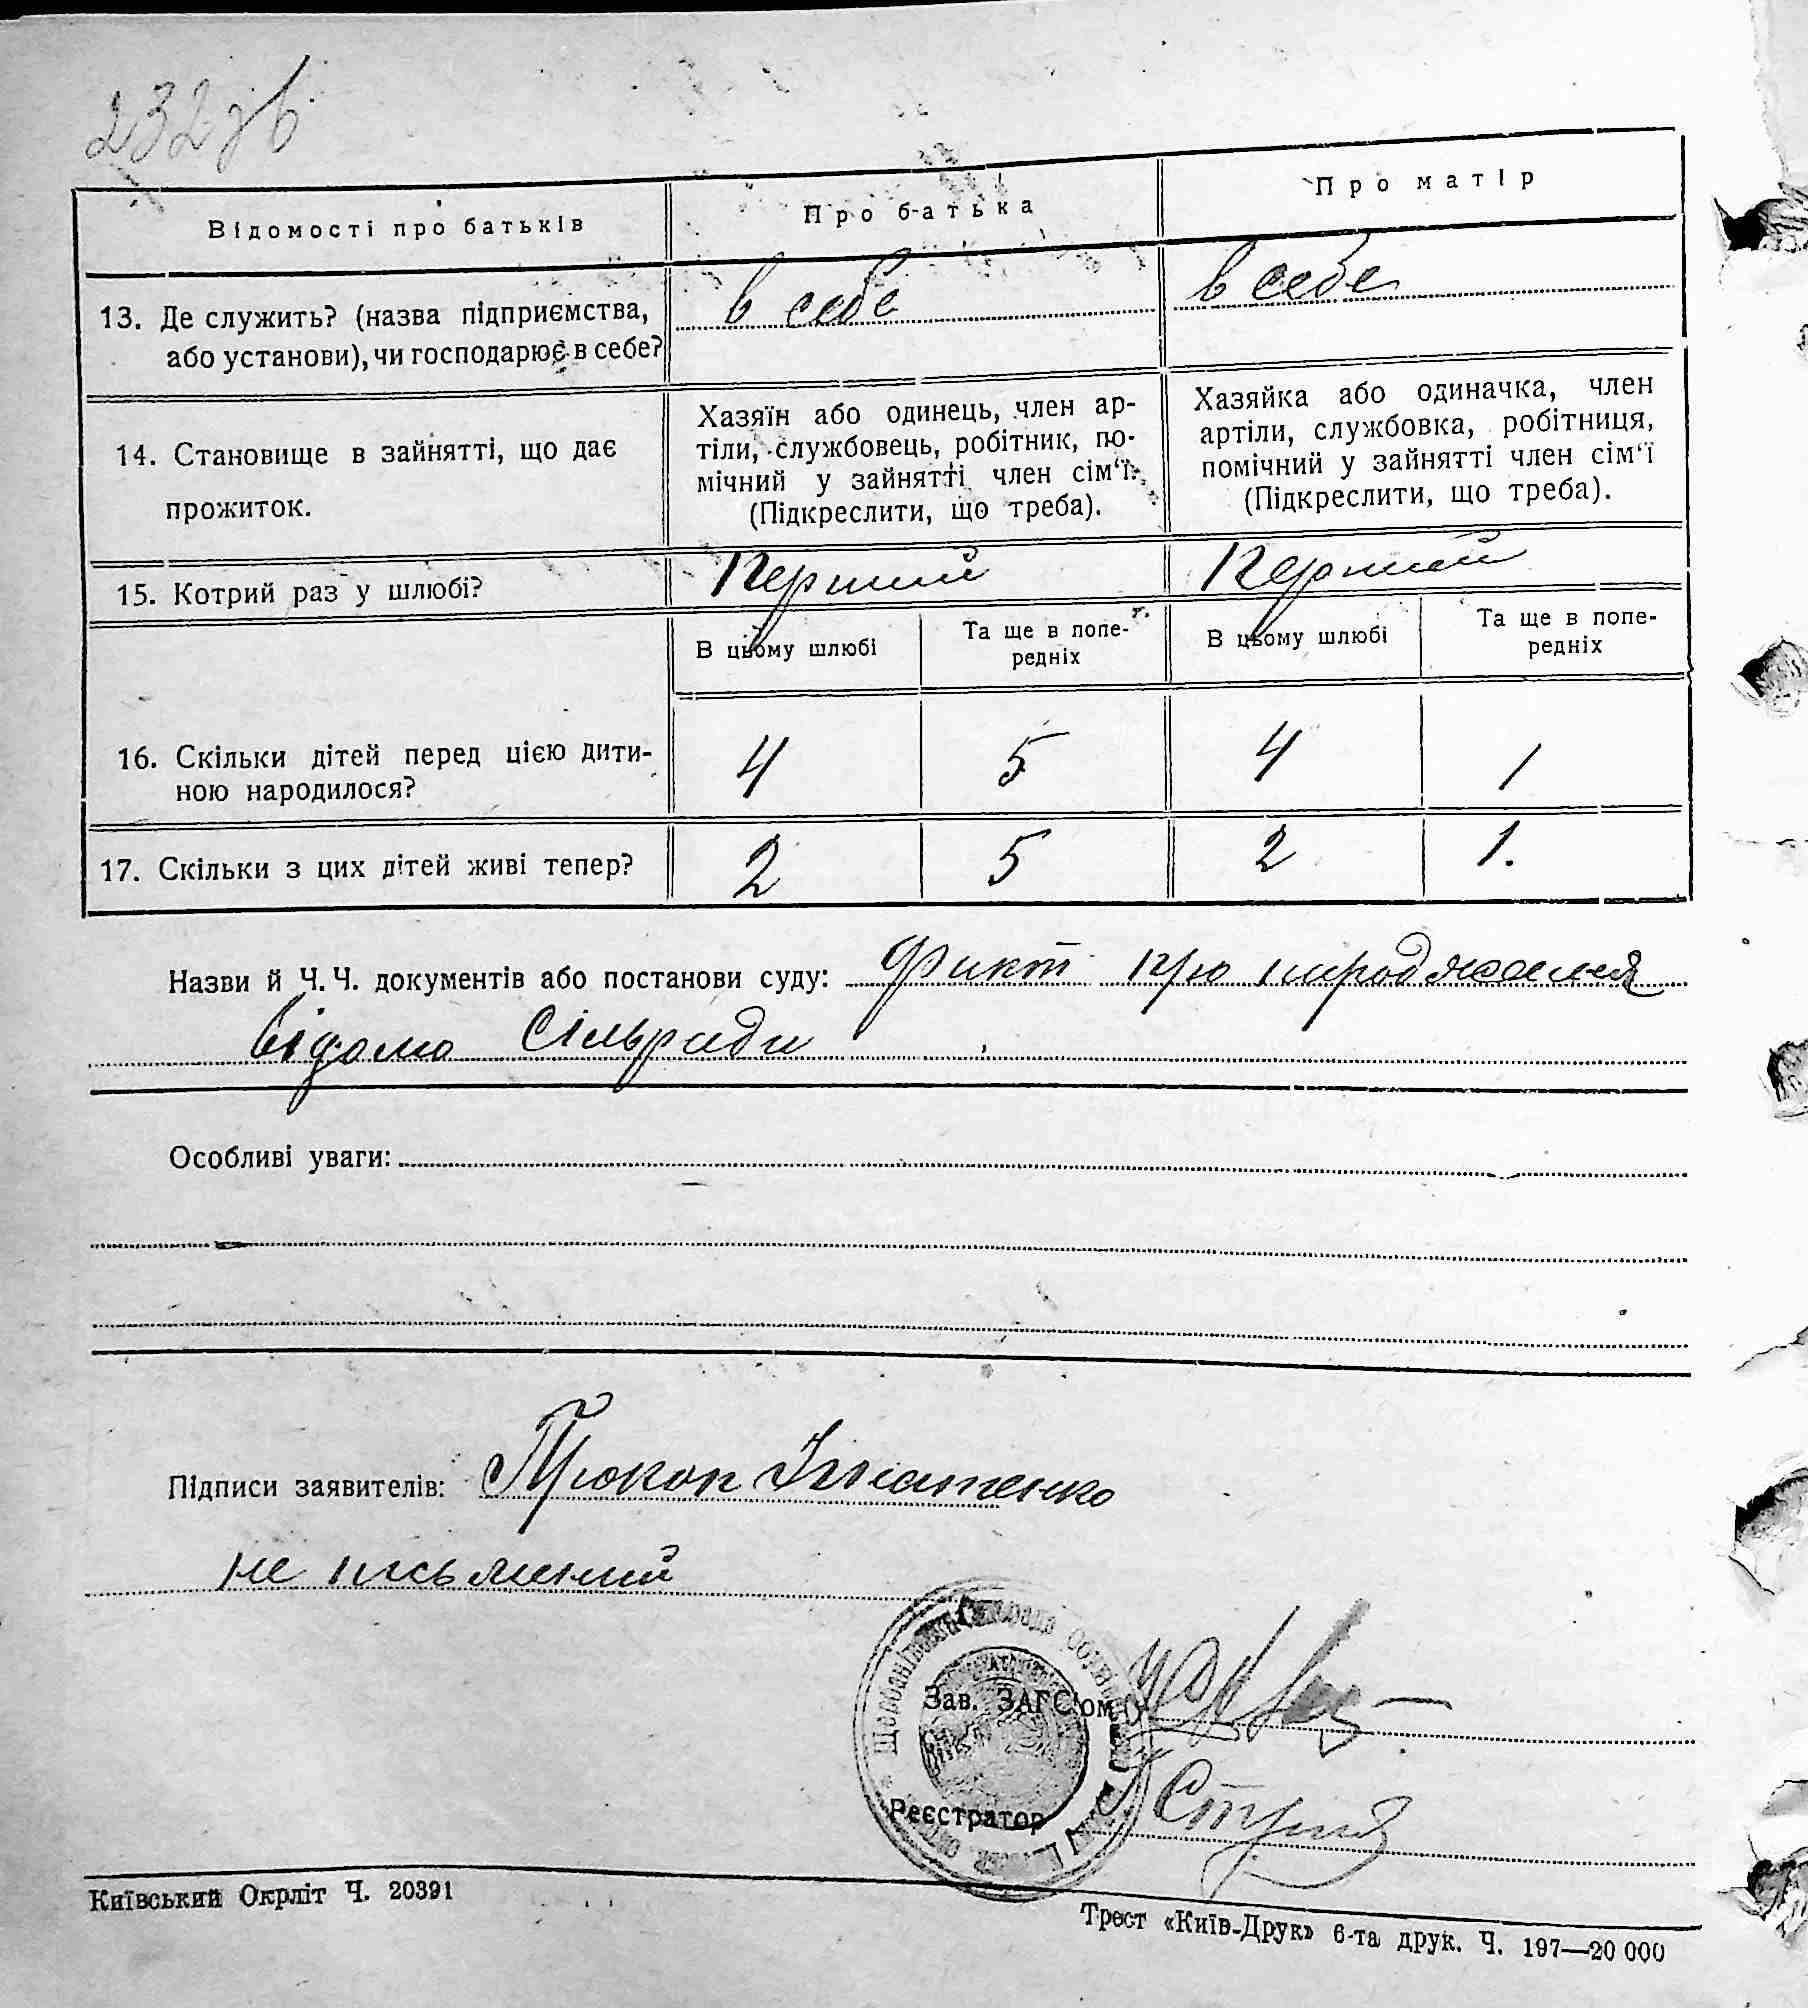 232 зв.
Відомості про батьків
Про батька
Про матір
13. Де служить? (назва підприємства, або установи), чи господарює в себе?
в себе
в себе
14. Становище в зайнятті, що дає прожиток.
Хазяїн або одинець, член ар-
тіли, службовець, робітник, по-
мічний у зайнятті член сім‘ї.
(Підкреслити, що треба).
Хазяйка або одиначка, член
артіли, службовка, робітниця,
помічний у зайнятті член сім‘ї
(Підкреслити, що треба).
15. Котрий раз у шлюбі?
Перший
Перший
В цьому шлюбі
Та ще в попе-
редніх
В цьому шлюбі
Та ще в попе-
редніх
16. Скільки дітей перед цією дити-
ною народилося?
4
5
4
1
17. Скільки з цих дітей живі тепер?
2
5
2
1.
Назви й Ч. Ч. документів або постанови суду: Факт про народження
відомо Сільради
Особливі уваги:
Підписи заявителів: Прокоп Ігнатенко
не письменний
Зав. ЗАГС'ом
Реєстратор
Київський Окрліт Ч. 20391
Трест «Київ-Друк» 6-та друк. Ч. 197—20 000